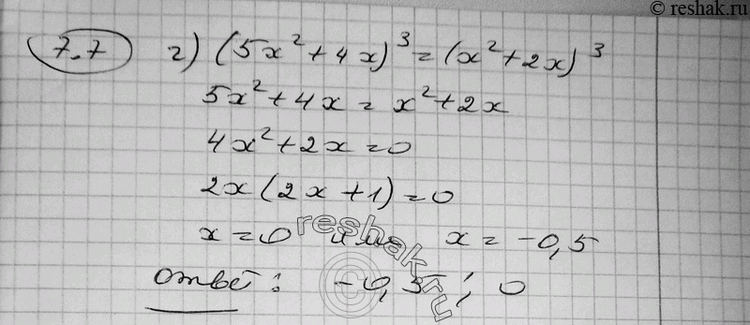 © reshak.ru
7.7 г) (5x² + 4x)³ = (x² + 2x)³
5x² + 4x = x² + 2x
4x² + 2x = 0
2x (2x + 1) = 0
x = 0 или x = -0,5
Ответ: -0,5; 0
reshak.ru
©